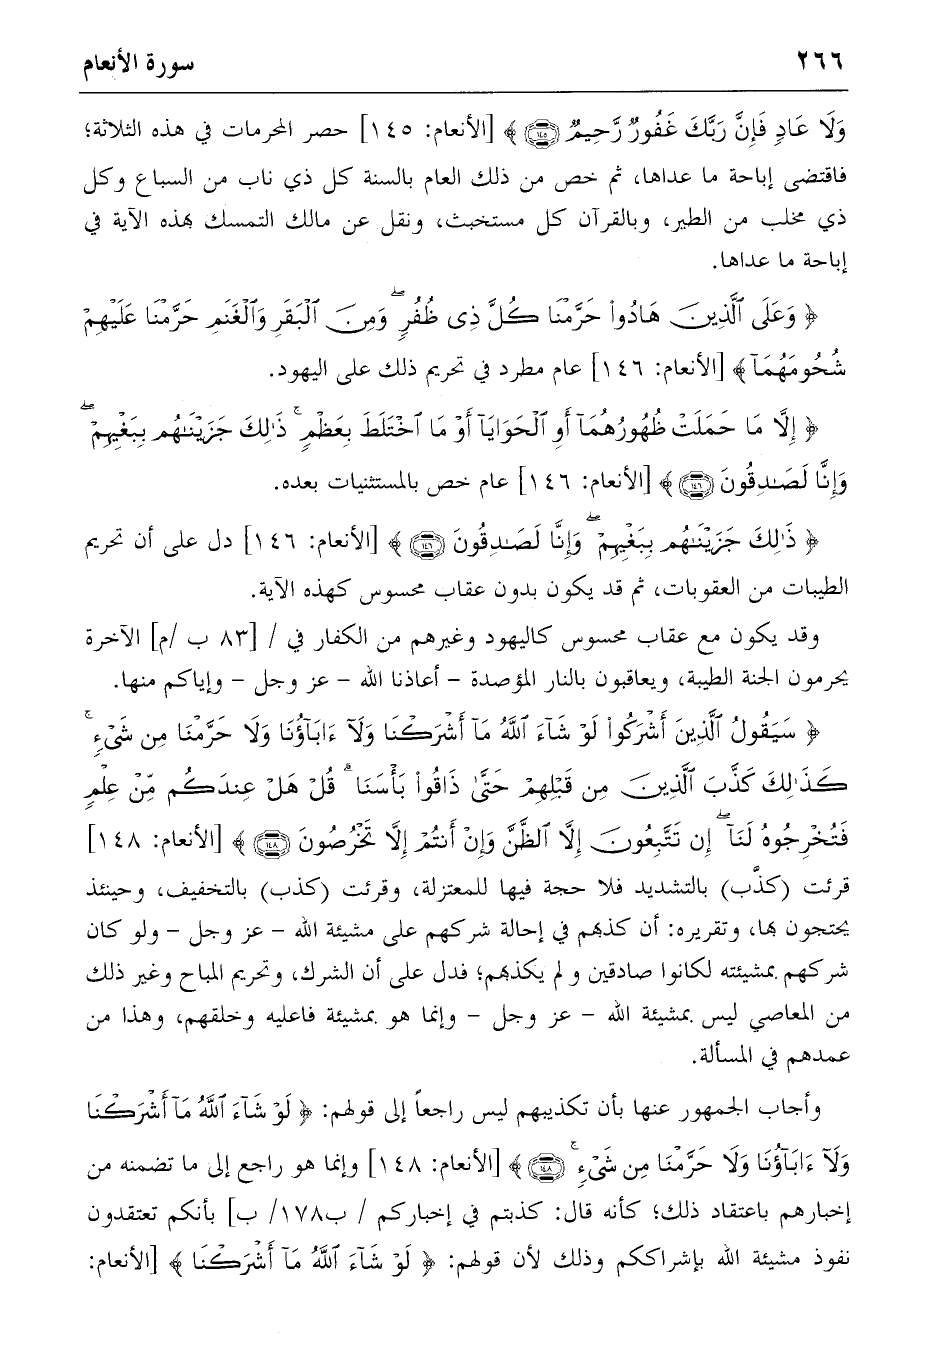 ٢٦٦ سورة الأنعام
وَلَا عَادٍ فَإِنَّ رَبَّكَ غَفُورٌ رَّحِيمٌ ١٤٥ ﴾ [الأنعام: ١٤٥] حصر المحرمات في هذه الثلاثة؛
فاقتضى إباحة ما عداها، ثم خص من ذلك العام بالسنة كل ذي ناب من السباع وكل
ذي مخلب من الطير، وبالقرآن كل مستخبث، ونقل عن مالك التمسك بهذه الآية في
إباحة ما عداها.
﴿ وَعَلَى ٱلَّذِينَ هَادُوا۟ حَرَّمْنَا كُلَّ ذِى ظُفُرٍ ۖ وَمِنَ ٱلْبَقَرِ وَٱلْغَنَمِ حَرَّمْنَا عَلَيْهِمْ
شُحُومَهُمَآ ﴾ [الأنعام: ١٤٦] عام مطرد في تحريم ذلك على اليهود.
﴿ إِلَّا مَا حَمَلَتْ ظُهُورُهُمَآ أَوِ ٱلْحَوَايَآ أَوْ مَا ٱخْتَلَطَ بِعَظْمٍ ۚ ذَٰلِكَ جَزَيْنَـٰهُم بِبَغْيِهِمْ ۖ
وَإِنَّا لَصَـٰدِقُونَ ١٤٦ ﴾ [الأنعام: ١٤٦] عام خص بالمستثنيات بعده.
﴿ ذَٰلِكَ جَزَيْنَـٰهُم بِبَغْيِهِمْ ۖ وَإِنَّا لَصَـٰدِقُونَ ١٤٦ ﴾ [الأنعام: ١٤٦] دل على أن تحريم
الطيبات من العقوبات، ثم قد يكون بدون عقاب محسوس كهذه الآية.
وقد يكون مع عقاب محسوس كاليهود وغيرهم من الكفار في / [٨٣ ب /م] الآخرة
يحرمون الجنة الطيبة، ويعاقبون بالنار المؤصدة – أعاذنا الله – عز وجل – وإياكم منها.
﴿ سَيَقُولُ ٱلَّذِينَ أَشْرَكُوا۟ لَوْ شَآءَ ٱللَّهُ مَآ أَشْرَكْنَا وَلَآ ءَابَآؤُنَا وَلَا حَرَّمْنَا مِن شَىْءٍ ۚ
كَذَٰلِكَ كَذَّبَ ٱلَّذِينَ مِن قَبْلِهِمْ حَتَّىٰ ذَاقُوا۟ بَأْسَنَا ۗ قُلْ هَلْ عِندَكُم مِّنْ عِلْمٍ
فَتُخْرِجُوهُ لَنَآ ۖ إِن تَتَّبِعُونَ إِلَّا ٱلظَّنَّ وَإِنْ أَنتُمْ إِلَّا تَخْرُصُونَ ١٤٨ ﴾ [الأنعام: ١٤٨]
قرئت (كذَّب) بالتشديد فلا حجة فيها للمعتزلة، وقرئت (كذب) بالتخفيف، وحينئذ
يحتجون بها، وتقريره: أن كذبهم في إحالة شركهم على مشيئة الله – عز وجل – ولو كان
شركهم بمشيئته لكانوا صادقين و لم يكذبهم؛ فدل على أن الشرك، وتحريم المباح وغير ذلك
من المعاصي ليس بمشيئة الله – عز وجل – وإنما هو بمشيئة فاعليه وخلقهم، وهذا من
عمدهم في المسألة.
وأجاب الجمهور عنها بأن تكذيبهم ليس راجعاً إلى قولهم: ﴿ لَوْ شَآءَ ٱللَّهُ مَآ أَشْرَكْنَا
وَلَآ ءَابَآؤُنَا وَلَا حَرَّمْنَا مِن شَىْءٍ ۚ ١٤٨ ﴾ [الأنعام: ١٤٨] وإنما هو راجع إلى ما تضمنه من
إخبارهم باعتقاد ذلك؛ كأنه قال: كذبتم في إخباركم / ب١٧٨/ ب] بأنكم تعتقدون
نفوذ مشيئة الله بإشراككم وذلك لأن قولهم: ﴿ لَوْ شَآءَ ٱللَّهُ مَآ أَشْرَكْنَا ﴾ [الأنعام: